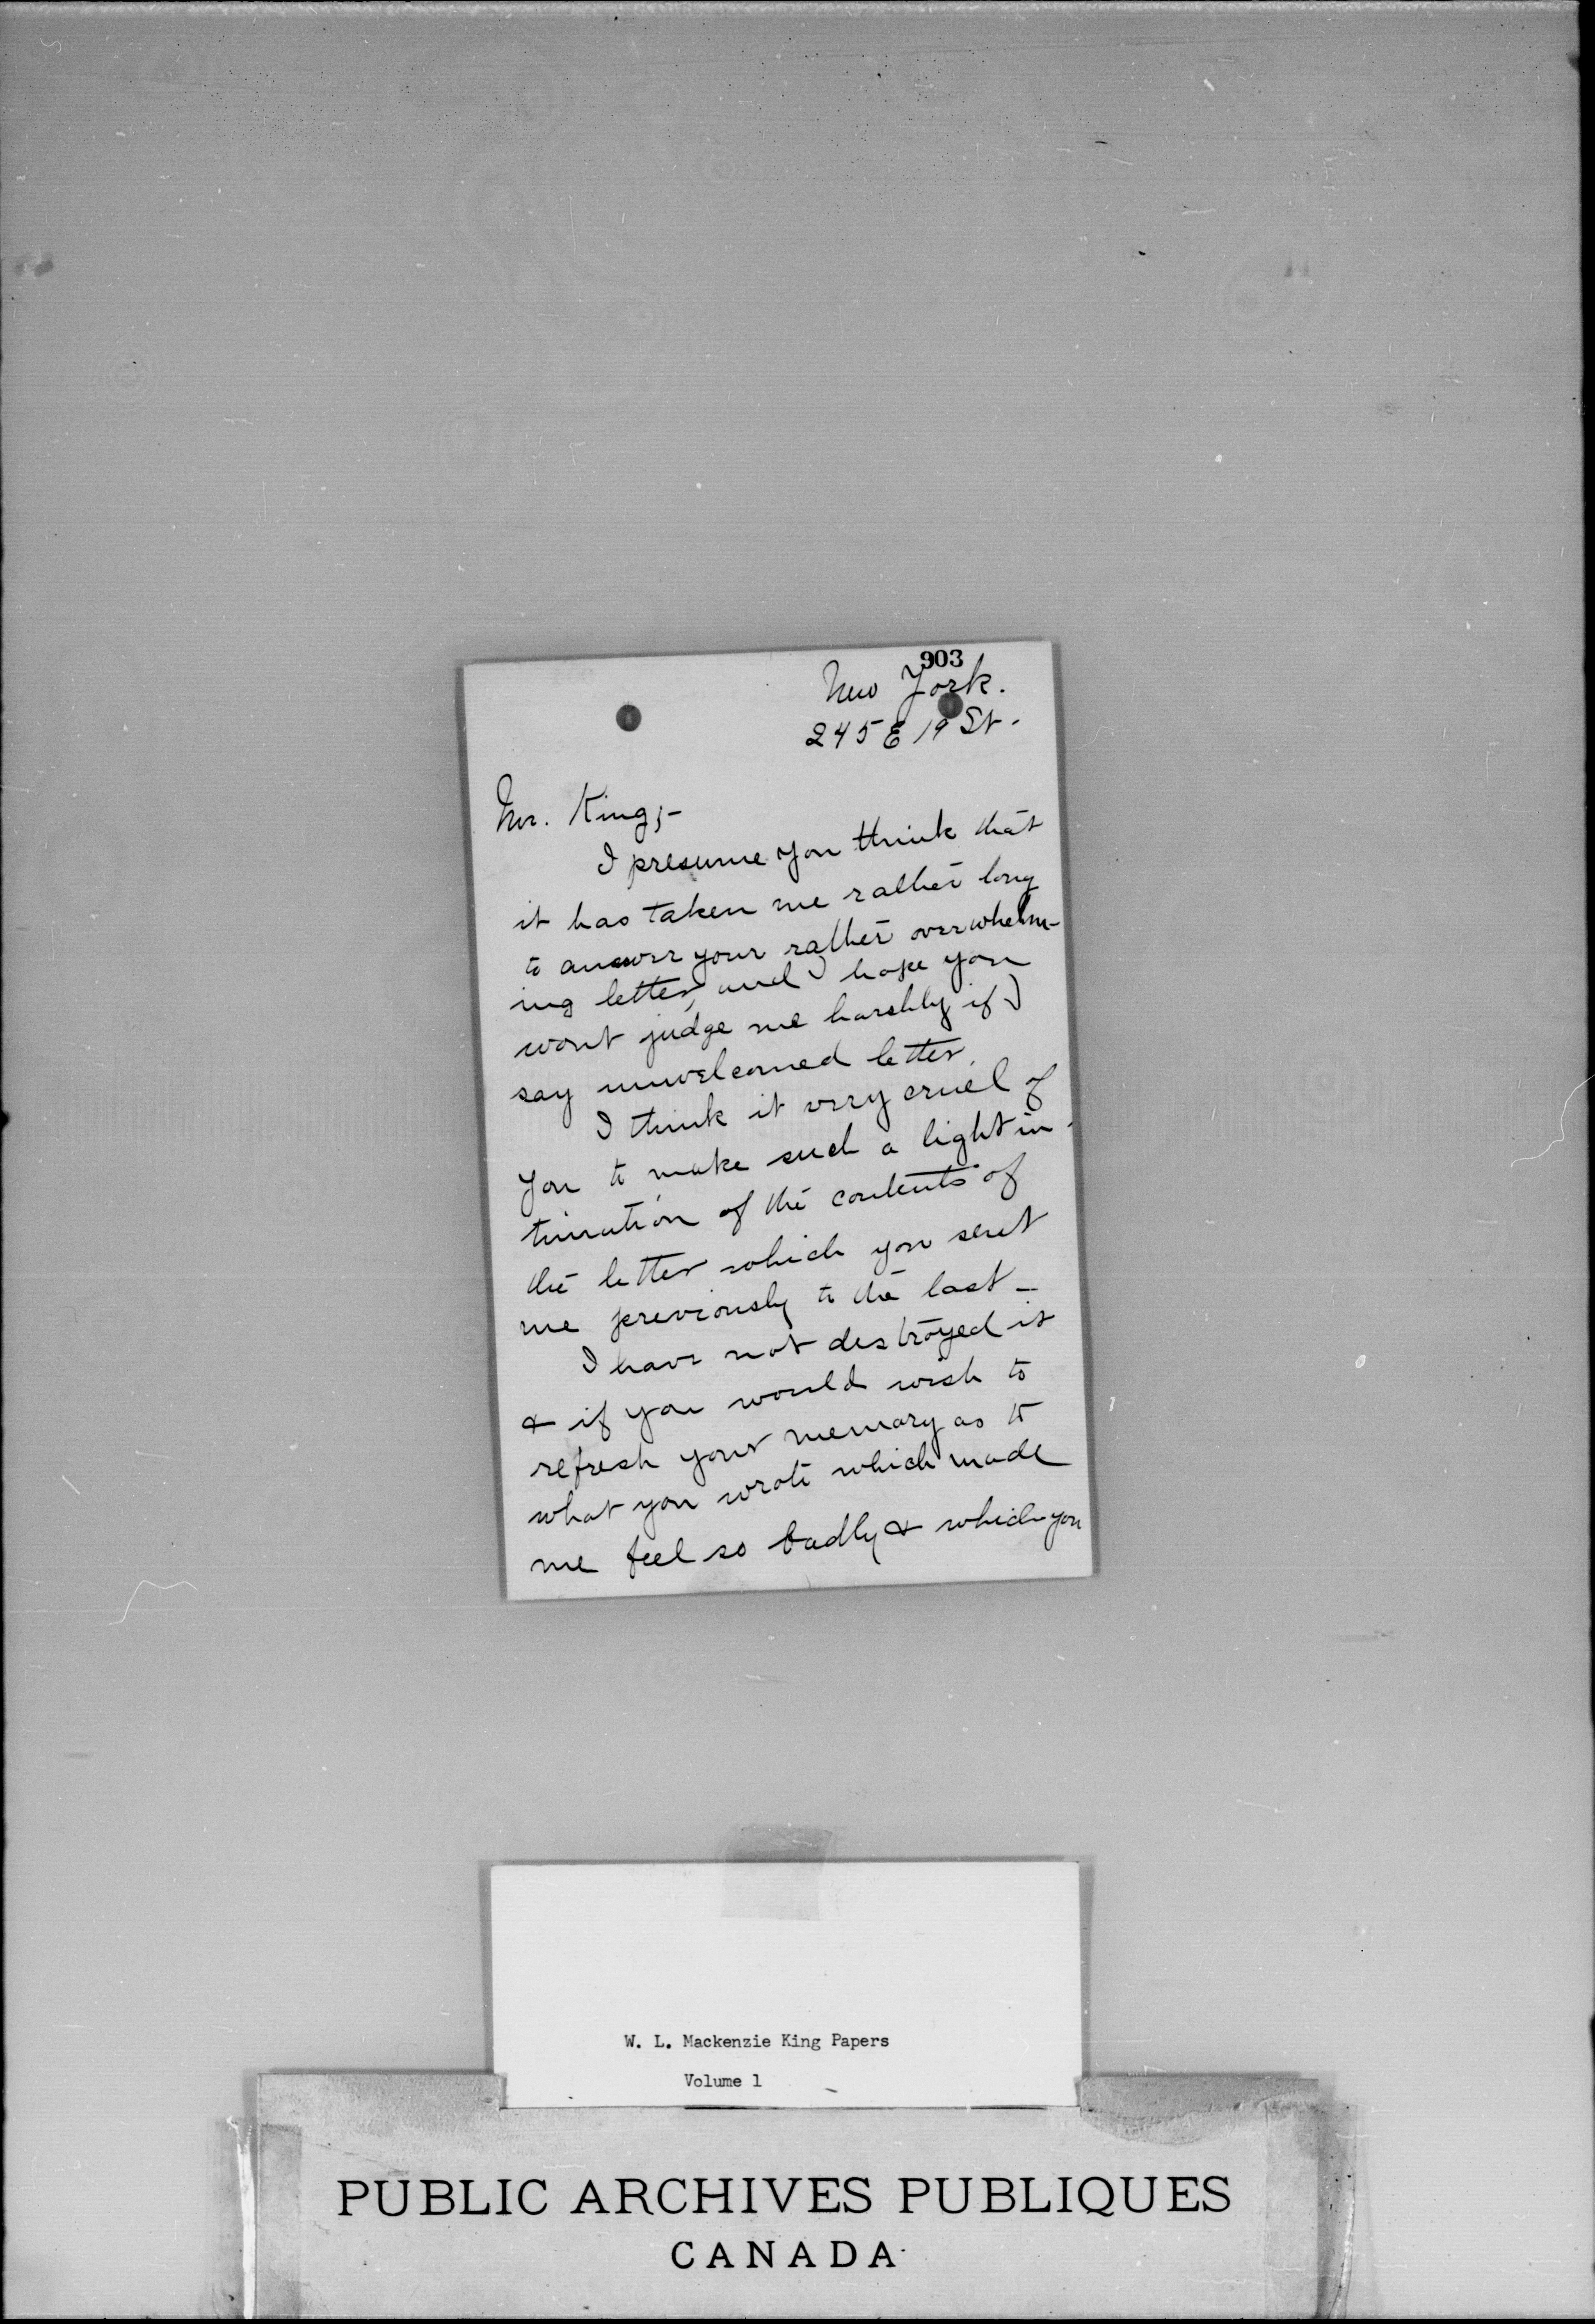 903
New York.
245 E 19 St.
Mr. King,-
I presume you think that
it has taken me rather long
to answer your rather overwhelm-
ing letter, and I hope you
wont judge me harshly if I
say unwelcomed letter.
I think it very cruel of
you to make such a light in-
timation of the contents of
the letter which you sent
me previously to the last -
I have not destroyed it
& if you would wish to
refresh your memory as to
what you wrote which made
me feel so badly & which you
W. L. Mackenzie King Papers
Volume 1
PUBLIC ARCHIVES PUBLIQUES
CANADA